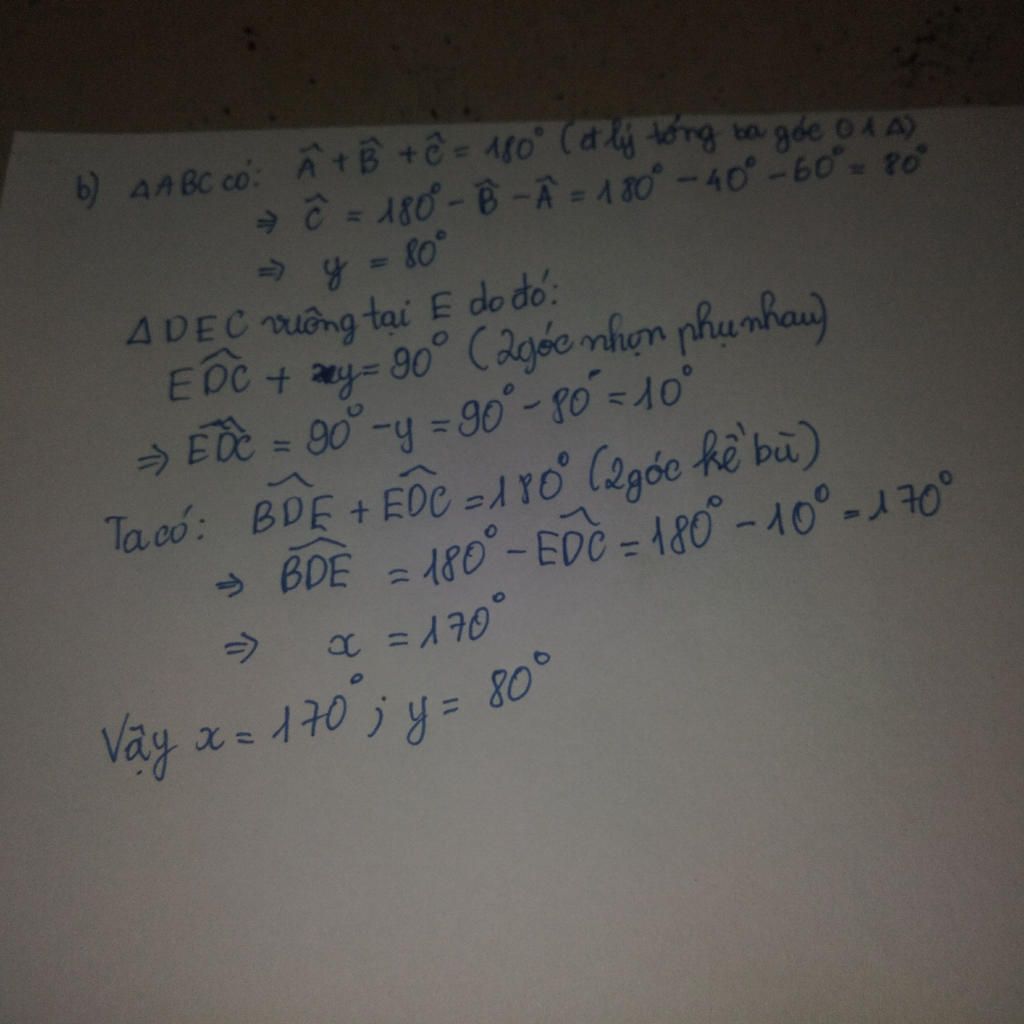 b) ΔABC có: Â + B̂ + Ĉ = 180° (đ lý tổng ba góc 0 1 Δ)
⇒ Ĉ = 180° - B̂ - Â = 180° - 40° - 60° = 80°
⇒ y = 80°
ΔDEC vuông tại E do đó:
EDC̑ + y = 90° (2góc nhọn phụ nhau)
⇒ EDC̑ = 90° - y = 90° - 80° = 10°
Ta có: BDȆ + EDC̑ = 180° (2góc kề bù)
⇒ BDȆ = 180° - EDC̑ = 180° - 10° = 170°
⇒ x = 170°
Vậy x = 170° ; y = 80°